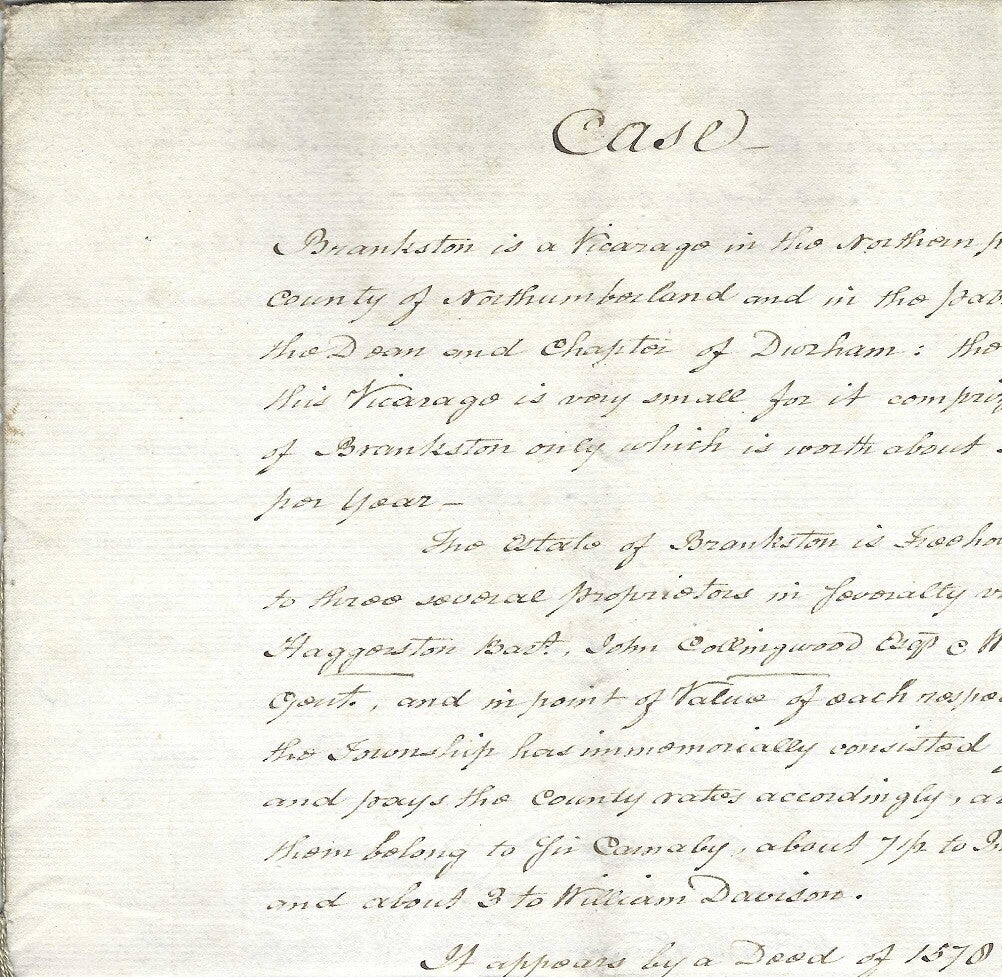 Case
Brankston is a Vicarage in the Northern p
County of Northumberland and in the pat
the Dean and Chapter of Durham: the
this Vicarage is very small for it compri
of Brankston only which is worth about
per Year
The Estate of Brankston is Freeho
to three several proprietors in severalty v
Haggerston Bart., John Collingwood Esqr & W
Gent., and in point of Value of each respe
the Township has immemorially consisted
and pays the County rates accordingly, a
them belong to Sir Carnaby, about 7½ to
and about 3 to William Davison.
It appears by a Deed of 1578